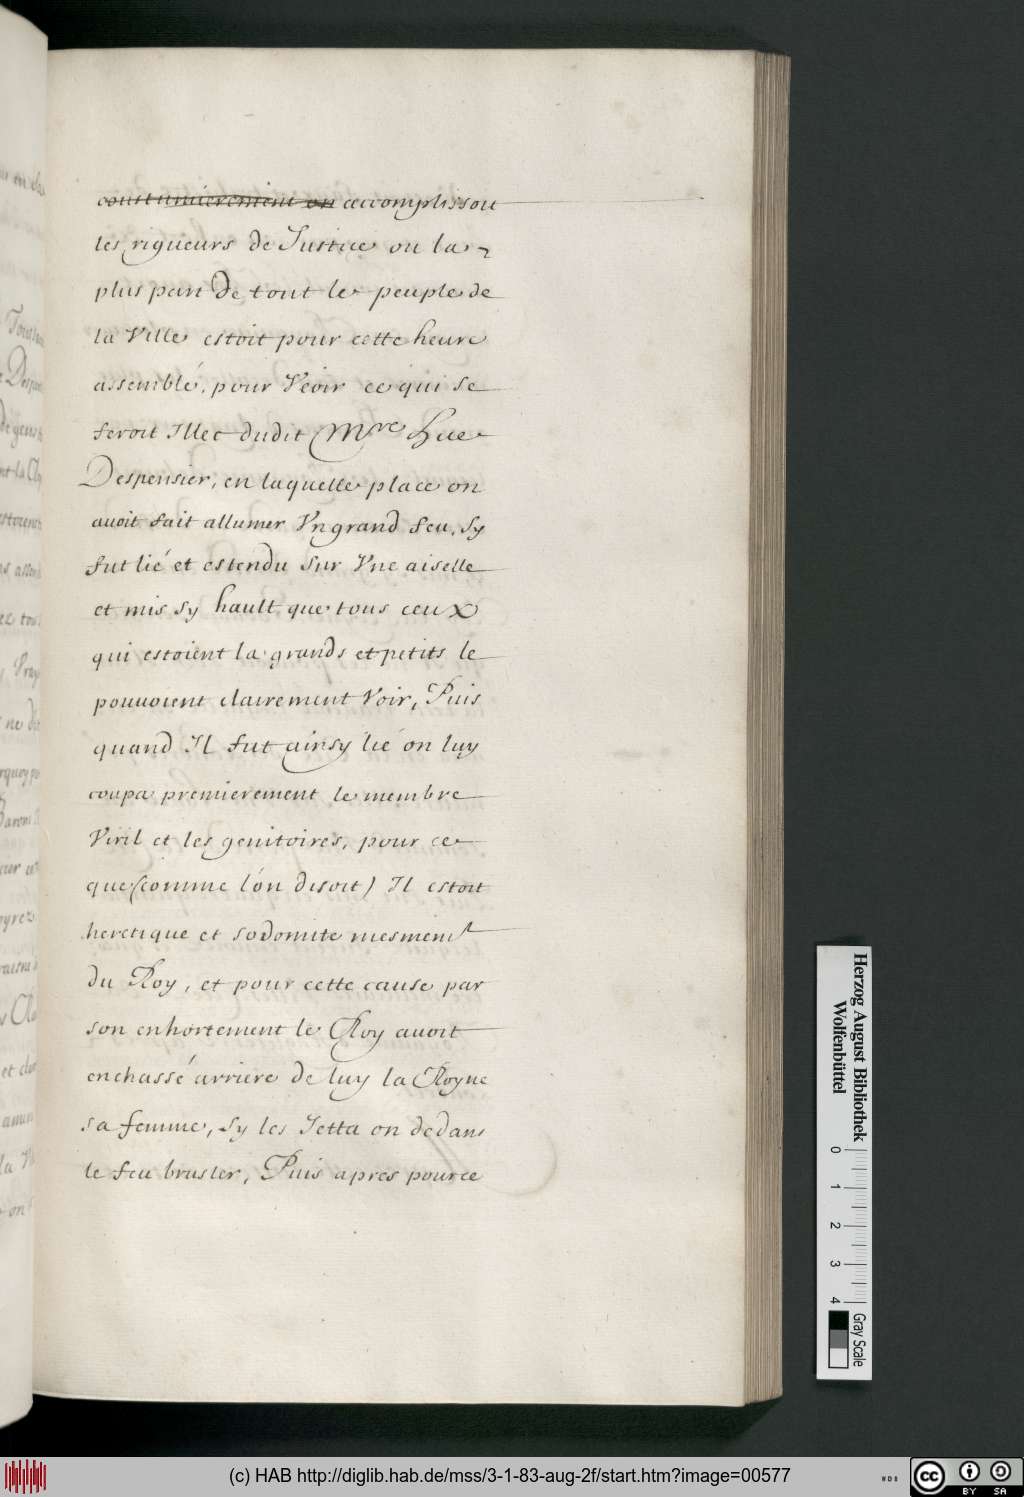 coustumierement on accomplissoit
les rigueurs de Justice ou la
plus part de tout le peuple de
la Ville estoit pour cette heure
assemblé, pour Veoir ce qui se
feroit Illec dudit Mre Hue
Despensier, en laquelle place on
auoit fait allumer Vn grand feu, Sy
fut lié et estendu sur Vne aiselle
et mis sy hault que tous ceux
qui estoient la grands et petits le
pouuoient clairement Voir, Puis
quand Il fut ainsy lié on luy
coupa premierement le membre
Viril et les genitoires, pour ce
que (comme l'on disoit) Il estoit
heretique et sodomite mesment
du Roy, et pour cette cause par
son enhortement le Roy auoit
enchassé arriere de luy la Royne
sa femme, Sy les Jetta on dedans
le feu brusler, Puis apres pource
Herzog August Bibliothek
Wolfenbüttel
0 1 2 3 4
Gray Scale
(c) HAB http://diglib.hab.de/mss/3-1-83-aug-2f/start.htm?image=00577
cc BY SA